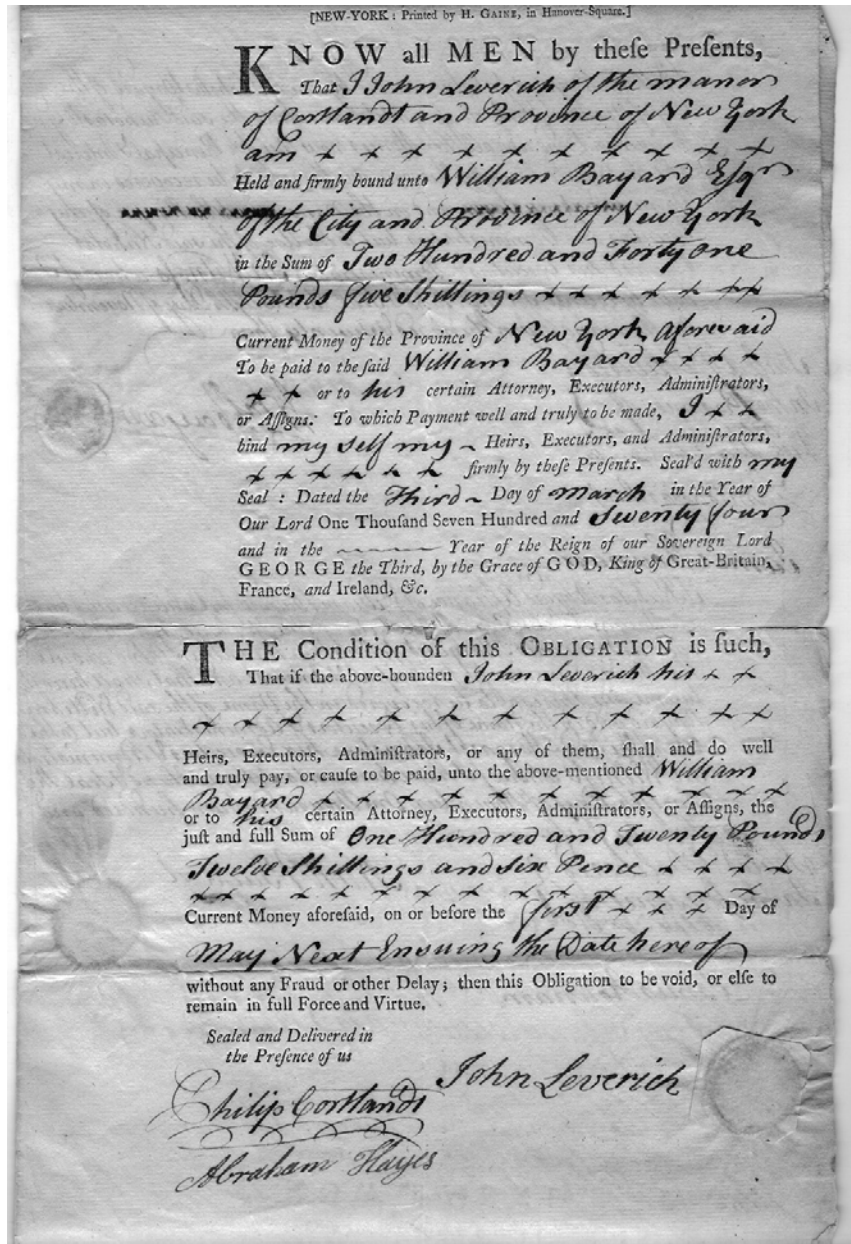 [NEW-YORK: Printed by H. GAINE, in Hanover-Square.]
KNOW all MEN by theſe Preſents,
That I John Leverich of the manor
of Cortlandt and Province of New York
am + + + + + + + + +
Held and firmly bound unto William Bayard Esqr
of the City and Province of New York
in the Sum of Two Hundred and Forty one
Pounds five Shillings + + + + + + +
Current Money of the Province of New York Aforesaid
To be paid to the ſaid William Bayard + + + +
+ + or to his certain Attorney, Executors, Adminiſtrators,
or Aſſigns: To which Payment well and truly to be made, I + +
bind my self my ~ Heirs, Executors, and Adminiſtrators,
+ + + + + + firmly by theſe Preſents. Seal'd with my
Seal: Dated the Third ~ Day of march in the Year of
Our Lord One Thouſand Seven Hundred and Seventy four
and in the ——— Year of the Reign of our Sovereign Lord
GEORGE the Third, by the Grace of GOD, King of Great-Britain,
France, and Ireland, &c.
THE Condition of this OBLIGATION is ſuch,
That if the above-bounden John Leverich his + +
+ + + + + + + + + + + +
Heirs, Executors, Adminiſtrators, or any of them, ſhall and do well
and truly pay, or cauſe to be paid, unto the above-mentioned William
Bayard + + + + + + + + + + +
or to his certain Attorney, Executors, Adminiſtrators, or Aſſigns, the
juſt and full Sum of One Hundred and Twenty Pounds
Twelve Shillings and Six Pence + + + +
+ + + + + + + + + + + + +
Current Money aforeſaid, on or before the first + + + Day of
May Next Ensuing the Date here of
without any Fraud or other Delay; then this Obligation to be void, or elſe to
remain in full Force and Virtue.
Sealed and Delivered in
the Preſence of us
John Leverich
Philip Cortlandt
Abraham Hayes